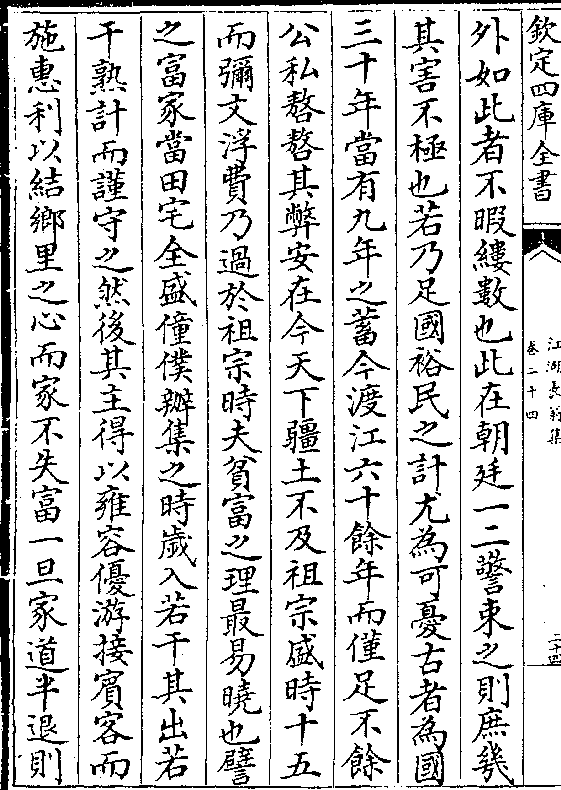 欽定四庫全書
江湖長翁集
卷二十四
二十四
外如此者不暇縷數也此在朝廷一二警束之則庶幾
其害不極也若乃足國裕民之計尤為可憂古者為國
三十年當有九年之蓄今渡江六十餘年而僅足不餘
公私嗸嗸其弊安在今天下疆土不及祖宗盛時十五
而彌文浮費乃過於祖宗時夫貧富之理最易曉也譬
之富家當田宅全盛僮僕辦集之時歲入若干其出若
干熟計而謹守之然後其主得以雍容優游接賓客而
施惠利以結鄉里之心而家不失富一旦家道半退則